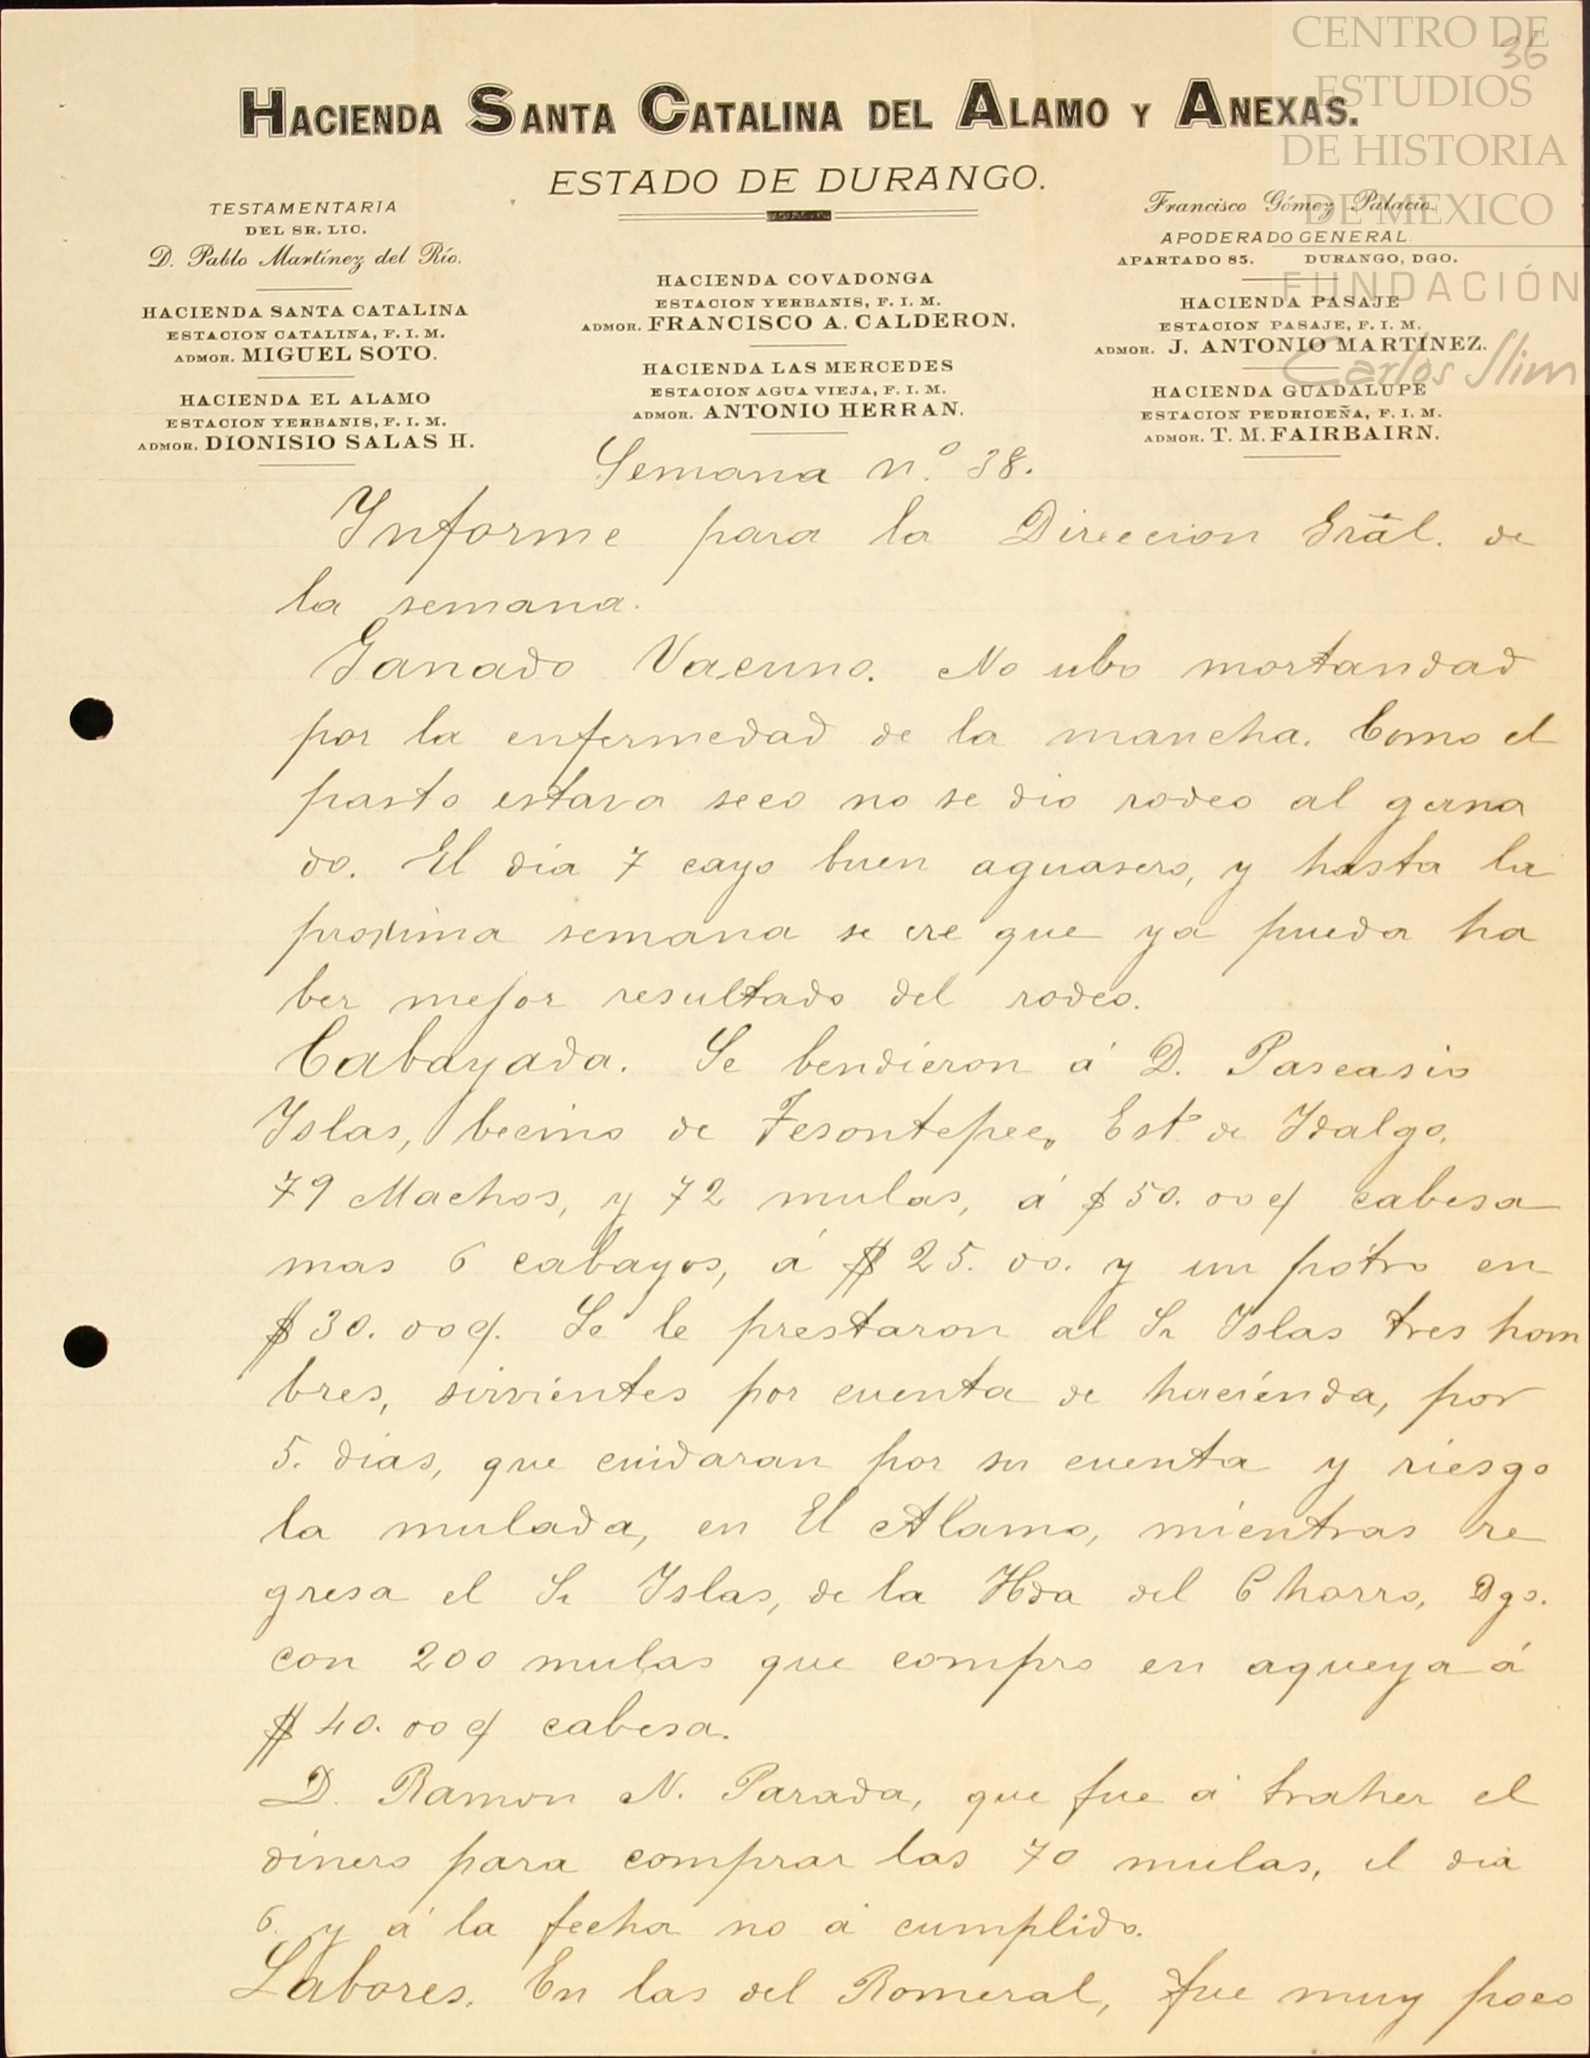 CENTRO DE
ESTUDIOS
DE HISTORIA
DE MEXICO
FUNDACIÓN
Carlos Slim
36
HACIENDA SANTA CATALINA DEL ALAMO Y ANEXAS.
ESTADO DE DURANGO.
TESTAMENTARIA
DEL SR. LIC.
D. Pablo Martínez del Río.
HACIENDA SANTA CATALINA
ESTACION CATALINA, F. I. M.
ADMOR. MIGUEL SOTO.
HACIENDA EL ALAMO
ESTACION YERBANIS, F. I. M.
ADMOR. DIONISIO SALAS H.
HACIENDA COVADONGA
ESTACION YERBANIS, F. I. M.
ADMOR. FRANCISCO A. CALDERON.
HACIENDA LAS MERCEDES
ESTACION AGUA VIEJA, F. I. M.
ADMOR. ANTONIO HERRAN.
Francisco Gómez Palacio.
APODERADO GENERAL.
APARTADO 85. DURANGO, DGO.
HACIENDA PASAJE
ESTACION PASAJE, F. I. M.
ADMOR. J. ANTONIO MARTINEZ.
HACIENDA GUADALUPE
ESTACION PEDRICEÑA, F. I. M.
ADMOR. T. M. FAIRBAIRN.
Semana n.º 38.
Informe para la Direccion Grãl. de
la semana.
Ganado Vacuno. No ubo mortandad
por la enfermedad de la mancha. Como el
pasto estava seco no se dio rodeo al gana
do. El día 7 cayo buen aguasero, y hasta la
proxima semana se cre que ya pueda ha
ber mejor resultado del rodeo.
Cabayada. Se bendieron á D. Pascasio
Islas, becino de Tesontepec, Est. de Idalgo,
79 Machos, y 72 mulas, á $50.00 c/ cabesa
mas 6 cabayos, á $25.00. y un pótro en
$30.00 c/. Se le prestaron al Sr Islas tres hom
bres, sirvientes por cuenta de hacienda, por
5. días, que cuidaran por su cuenta y riesgo
la mulada, en El Alamo, mientras re
gresa el Sr Islas, de la Hda del Chorro, Dgo.
con 200 mulas que compro en aqueya á
$40.00 c/ cabesa.
D. Ramon N. Parada, que fue á traher el
dinero para comprar las 70 mulas, el dia
6. y á la fecha no á cumplido.
Labores. En las del Romeral, fue muy poco